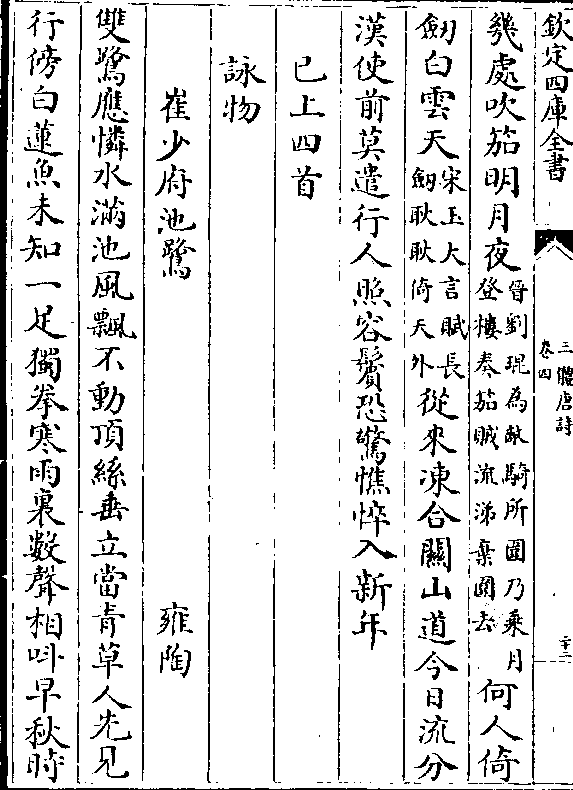 欽定四庫全書
三體唐詩
卷四
二十二
幾處吹笳明月夜晉劉琨為敵騎所圍乃乘月登樓奏笳賊流涕棄圍去何人倚
劒白雲天宋玉大言賦長劒耿耿倚天外從來凍合關山道今日流分
漢使前莫遣行人照容鬢恐驚憔悴入新年
已上四首
詠物
崔少府池鷺 雍陶
雙鷺應憐水滿池風飄不動頂絲垂立當青草人先見
行傍白蓮魚未知一足獨拳寒雨裏數聲相呌早秋時